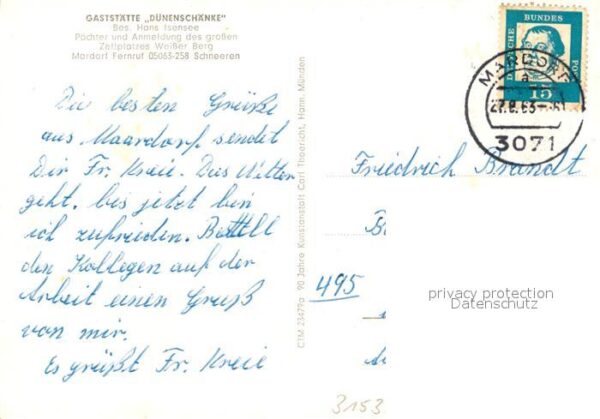 GASTSTÄTTE „DÜNENSCHÄNKE"
Bes. Hans Isensee
Pächter und Anmeldung des großen
Zeltplatzes Weißer Berg
Mardorf Fernruf 05063-258 Schneeren
Die besten Grüße
aus Maardorf sendet
Dir Fr. Kreie. Das Wetter
geht, bis jetzt bin
ich zufrieden. Bestell
den Kollegen auf der
Arbeit einen Gruß
von mir.
Es grüßt Fr. Kreie
CTM 23479a 90 Jahre Kunstanstalt Carl Thoericht, Hann. Münden
DEUTSCHE BUNDES POST
15
MARDORF
a
27.8.63
3071
Friedrich Brandt
B
495
privacy protection
Datenschutz
3153